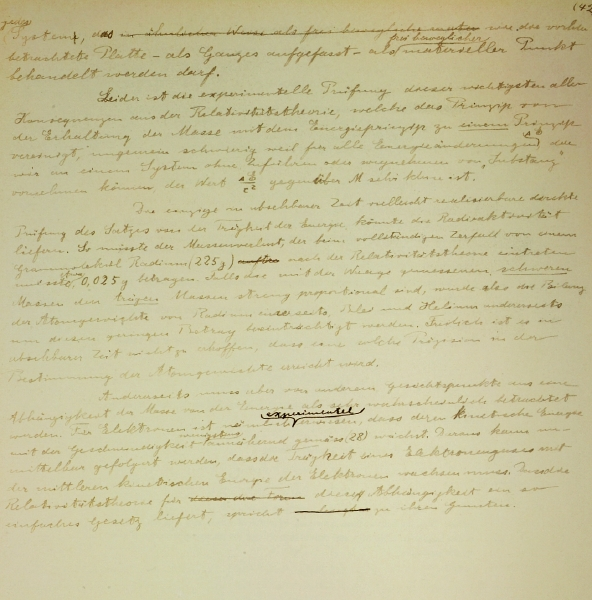 (42
jedes System, das in ähnlicher Weise als frei beweglicher materi wie die vorhin
frei beweglicher
betrachtete Platte - als Ganzes aufgefasst - als materieller Punkt
behandelt werden darf.
Leider ist die experimentelle Prüfung dieser wichtigsten aller
Konsequenzen aus der Relativitätstheorie, welche das Prinzip von
der Erhaltung der Masse mit dem Energieprinzip zu einem Prinzip
vereinigt, ungemein schwierig, weil für alle Energieänderungen, die
wir an einem System ohne Zuführen oder wegnehmen von "Substanz"
vornehmen können, der Wert gegenüber M sehr klein ist.
Die einzige in absehbarer Zeit vielleicht realisierbare direkte
Prüfung des Satzes von der Trägheit der Energie könnte die Radioaktivität
liefern. So müsste der Massenverlust, der beim vollständigen Zerfall von einem
Grammolekül Radium (225 g) nach der Relativitätstheorie eintreten
müsste, 0,025 g betragen. Falls die mit der Wage gemessenen, schweren
Massen den trägen Massen streng proportional sind, würde also die Bilanz
der Atomgewichte von Radium einerseits, Blei und Helium andererseits
um diesen geringen Betrag beeinträchtigt werden. Freilich ist es in
absehbarer Zeit nicht zu erhoffen, dass eine solche Präzision in der
Bestimmung der Atomgewichte erreicht wird.
Anderseits muss aber von anderem Gesichtspunkte aus eine
Abhängigkeit der Masse von der Energie als sehr wahrscheinlich betrachtet
experimentell
werden. Für Elektronen ist nämlich erwiesen, dass deren kinetische Energie
mit der Geschwindigkeit annähernd gemäss (28) wächst. Daraus kann un-
mittelbar gefolgert werden, dass die Trägheit eines Elektronengases mit
der mittleren kinetischen Energie der Elektronen wachsen muss. Dass die
Relativitätstheorie für diese Abhängigkeit ein so
einfaches Gesetz liefert, spricht zu ihren Gunsten.